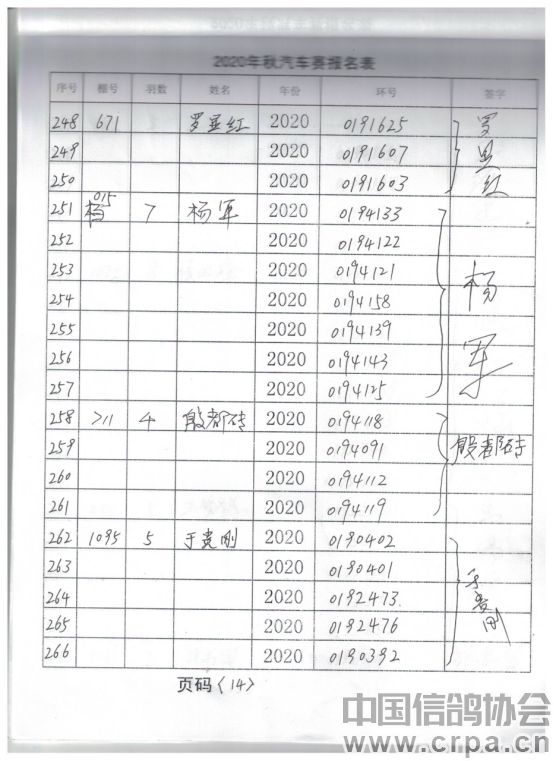 2020年秋汽车赛报名表
序号 棚号 羽数 姓名 年份 环号 签字
248 671 罗显红 2020 0191625 罗显红
249 2020 0191607
250 2020 0191603
251 015 7 杨军 2020 0194133 杨军
252 2020 0194122
253 2020 0194121
254 2020 0194158
255 2020 0194139
256 2020 0194143
257 2020 0194125
258 711 4 殷都砖 2020 0194118 殷都砖
259 2020 0194091
260 2020 0194112
261 2020 0194119
262 1095 5 于贵刚 2020 0190402 于贵刚
263 2020 0190401
264 2020 0192473
265 2020 0192476
266 2020 0190392
页码〈14〉
中国信鸽协会
www.crpa.cn